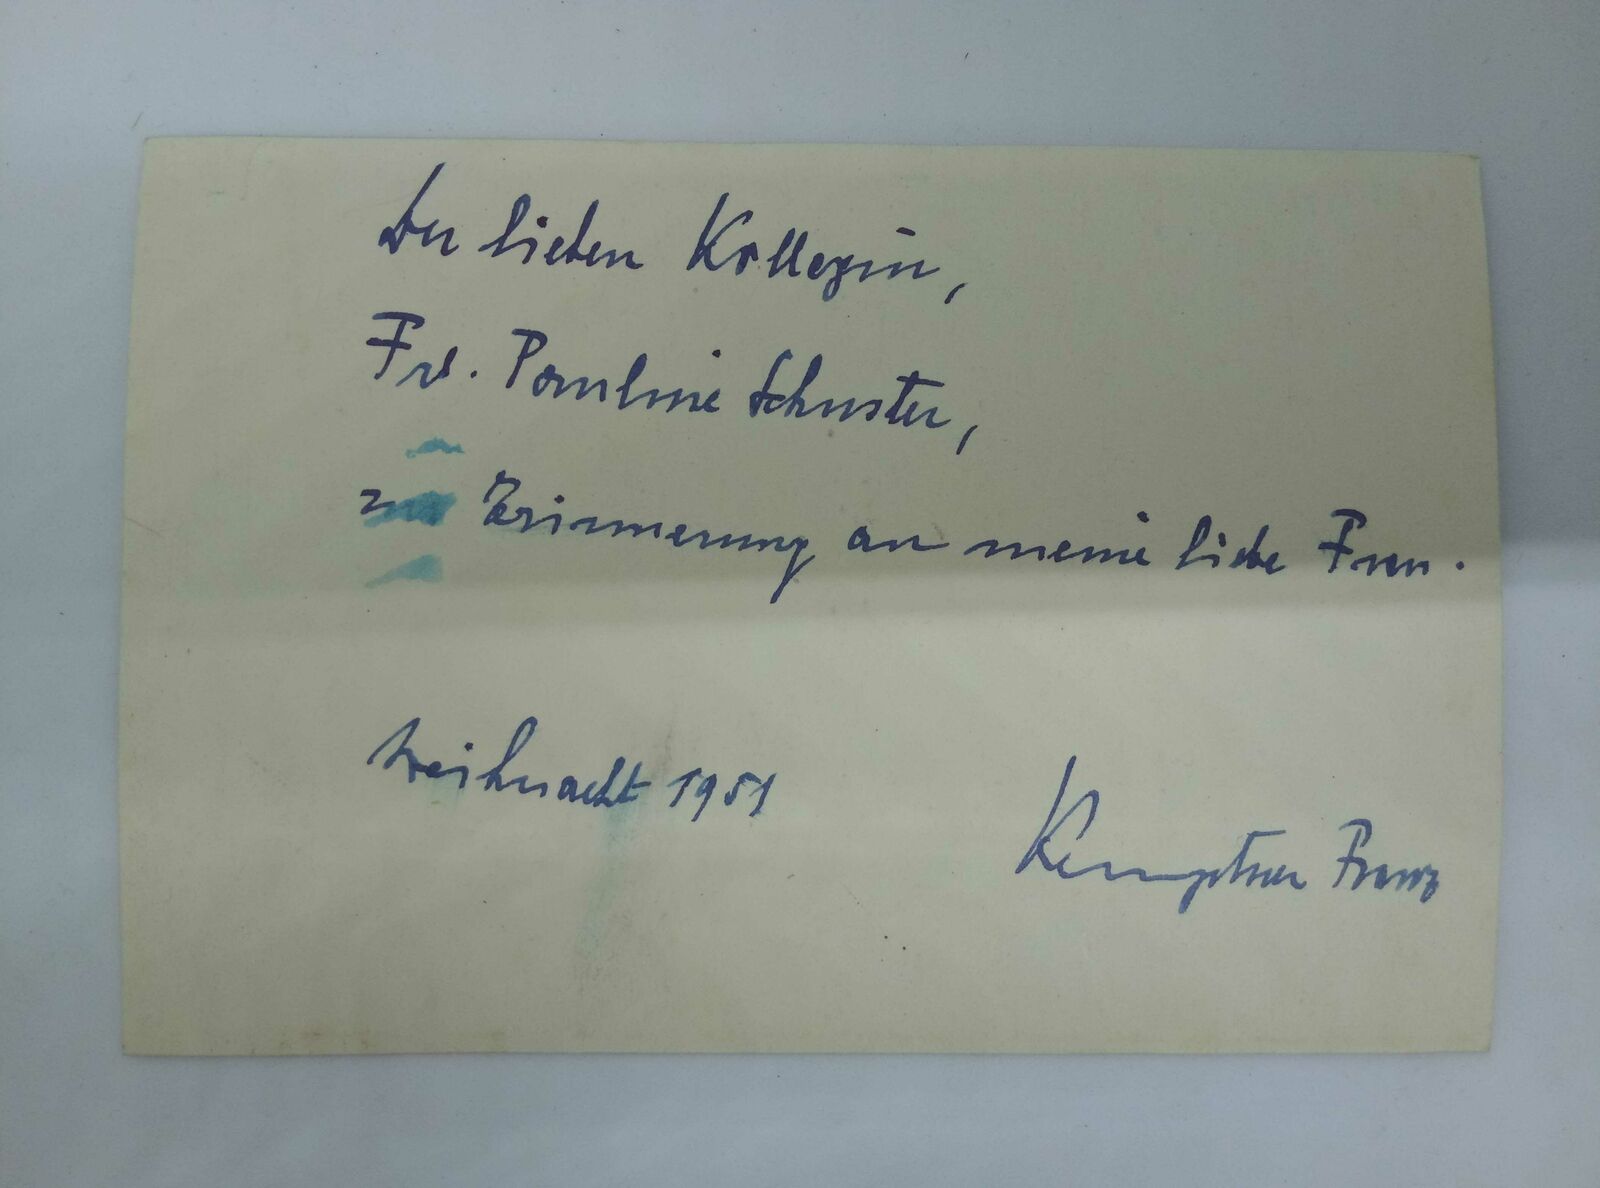 Der lieben Kollegin,
Frl. Pauline Schuster,
zur Erinnerung an meine liebe Frau.
Weihnacht 1951
Kemptner Franz